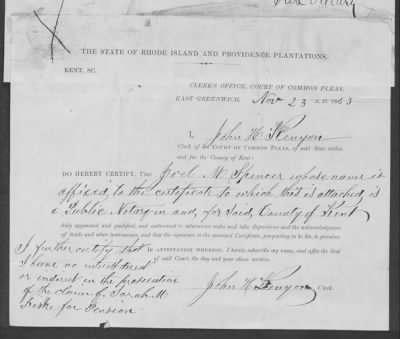 THE STATE OF RHODE ISLAND AND PROVIDENCE PLANTATIONS.
KENT, SC.
CLERK'S OFFICE, COURT OF COMMON PLEAS,
EAST GREENWICH, Nov 23 A. D. 1863
I, John H. Kenyon
Clerk of the COURT OF COMMON PLEAS, of said State within
and for the County of Kent:
DO HEREBY CERTIFY, THAT Joel M Spencer whose name is
affixed to the certificate to which this is attached is
a Public Notary in and for Said County of Kent
duly appointed and qualified, and authorized to administer oaths and take depositions and the acknowledgment
of deeds and other instruments, and that the signature to the annexed Certificate, purporting to be his, is genuine.
I further certify that IN ATTESTATION WHEREOF, I hereto subscribe my name, and affix the Seal
of said Court, the day and year above written.
I have no interest
or interest in the prosecution
of the claim of Sarah M.
John H. Kenyon CLERK
Fiske for Pension